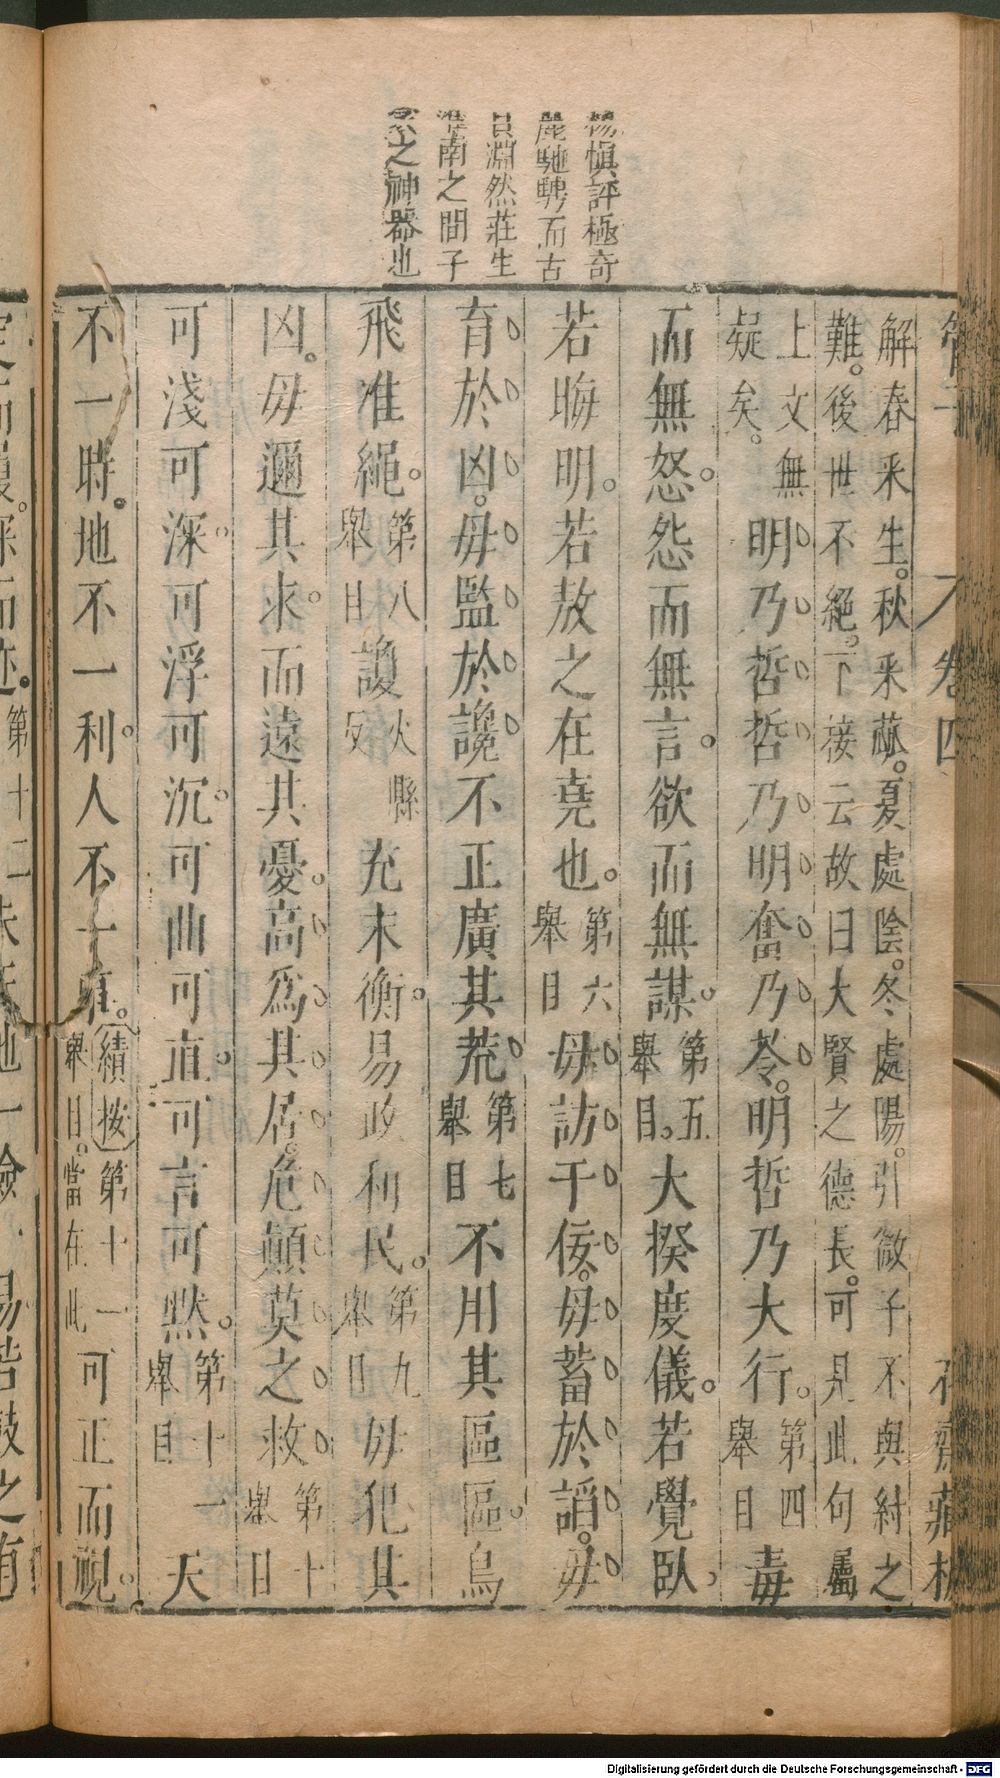 楊慎評極奇
麗馳騁而古
質淵然莊生
淮南之間子
家之神器也
卷四
解春采生。秋采蓏。夏處陰。冬處陽。引微子不與紂之
難。後世不絕。下接云故曰大賢之德長。可見此句屬
上文無
疑矣。
明乃哲哲乃明奮乃苓。明哲乃大行。
第四
舉目
毒
而無怒。怨而無言。欲而無謀。
第五
舉目。
大揆度儀。若覺臥。
若晦明。若敖之在堯也。
第六
舉目
毋訪于佞。毋蓄於諂。毋
育於凶。毋監於讒。不正廣其荒。
第七
舉目
不用其區區。鳥
飛准繩。
第八
舉目
諼
火縣
反
充末衡。易政利民。
第九
舉目
毋犯其
凶。毋邇其求。而遠其憂。高爲其居。危顛莫之救。
第十
舉目
可淺可深。可浮可沉。可曲可直。可言可默。
第十一
舉目
天
不一時。地不一利。人不一事。
績按第十一
舉目。當在此
可正而視。
定而履。深而迹。
第十二
地一險一易若鼓之有
Digitalisierung gefördert durch die Deutsche Forschungsgemeinschaft - DFG